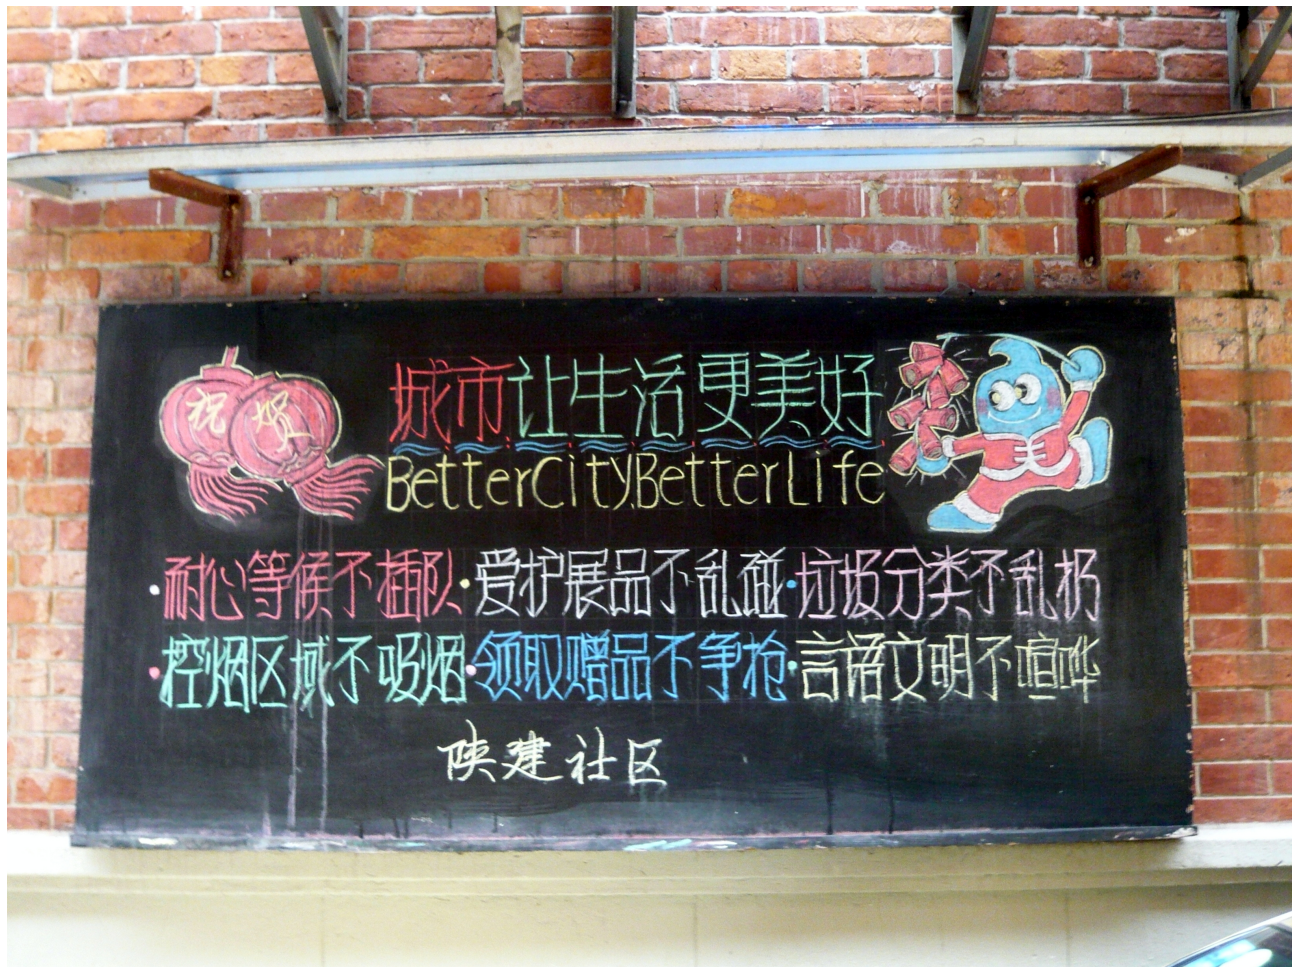 祝贺
城市让生活更美好
BetterCityBetterLife
·耐心等候不插队·爱护展品不乱碰·垃圾分类不乱扔
·控烟区域不吸烟·领取赠品不争抢·言语文明不喧哗
陕建社区